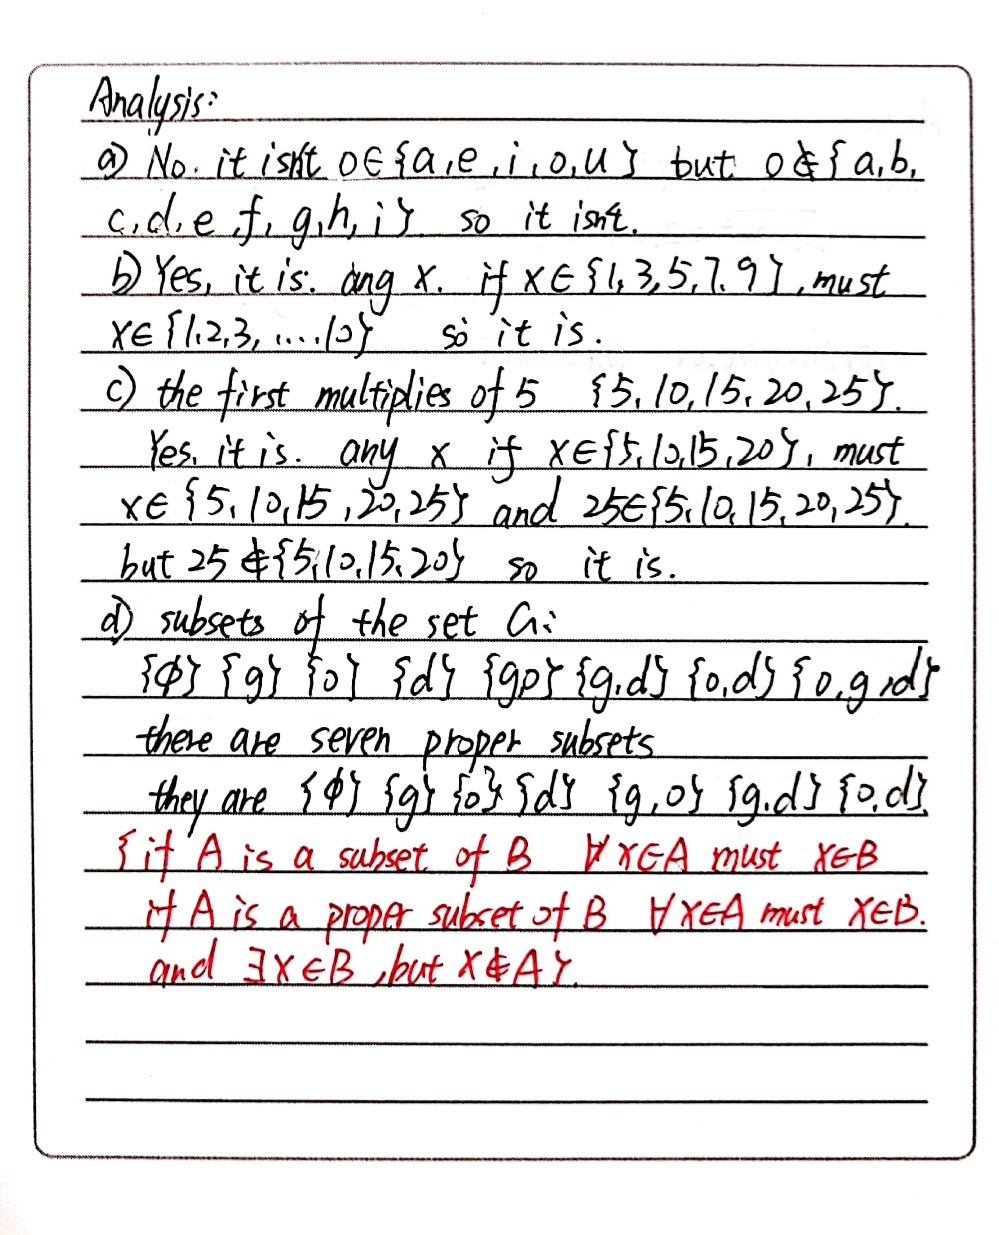 Analysis:
a) No. it isn't o∈{a,e,i,o,u} but o∉{a,b,
c,d,e,f,g,h,i} so it isn't.
b) Yes, it is. any x. if x∈{1,3,5,7,9}, must
x∈{1,2,3,....10} so it is.
c) the first multiplies of 5 {5,10,15,20,25}.
Yes. it is. any x if x∈{5,10,15,20}, must
x∈{5,10,15,20,25} and 25∈{5,10,15,20,25}.
but 25∉{5,10,15,20} so it is.
d) subsets of the set G:
{ϕ} {g} {o} {d} {go} {g,d} {o,d} {o,g,d}
there are seven proper subsets
they are {ϕ} {g} {o} {d} {g,o} {g.d} {o.d}.
{if A is a subset of B ∀x∈A must x∈B
if A is a proper subset of B ∀x∈A must x∈B.
and ∃x∈B, but x∉A}.